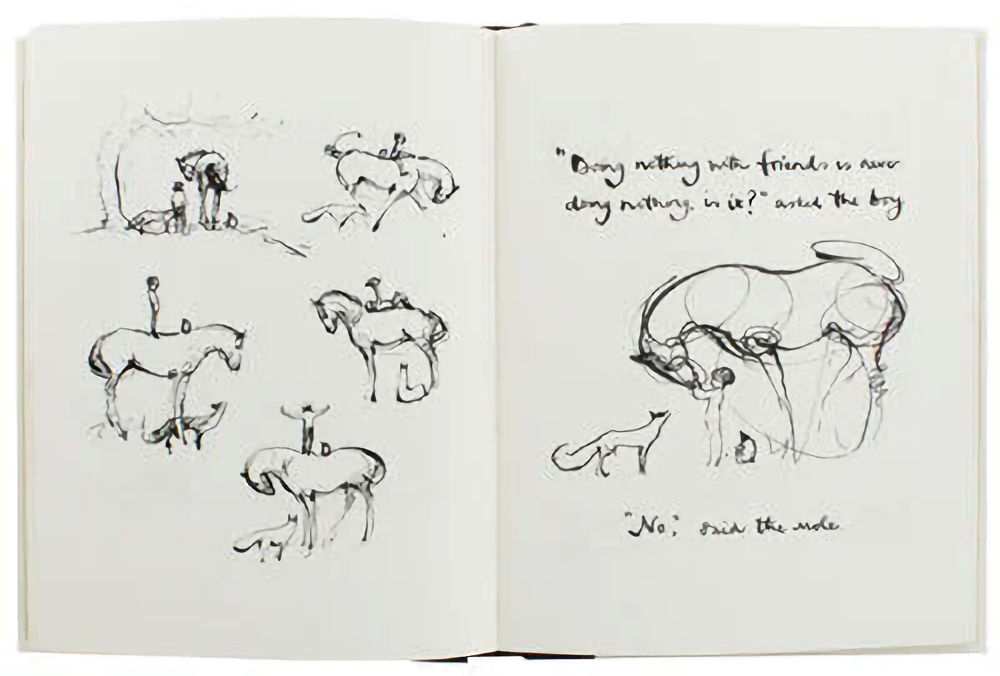 "Doing nothing with friends is never
doing nothing, is it?" asked the boy
"No," said the mole